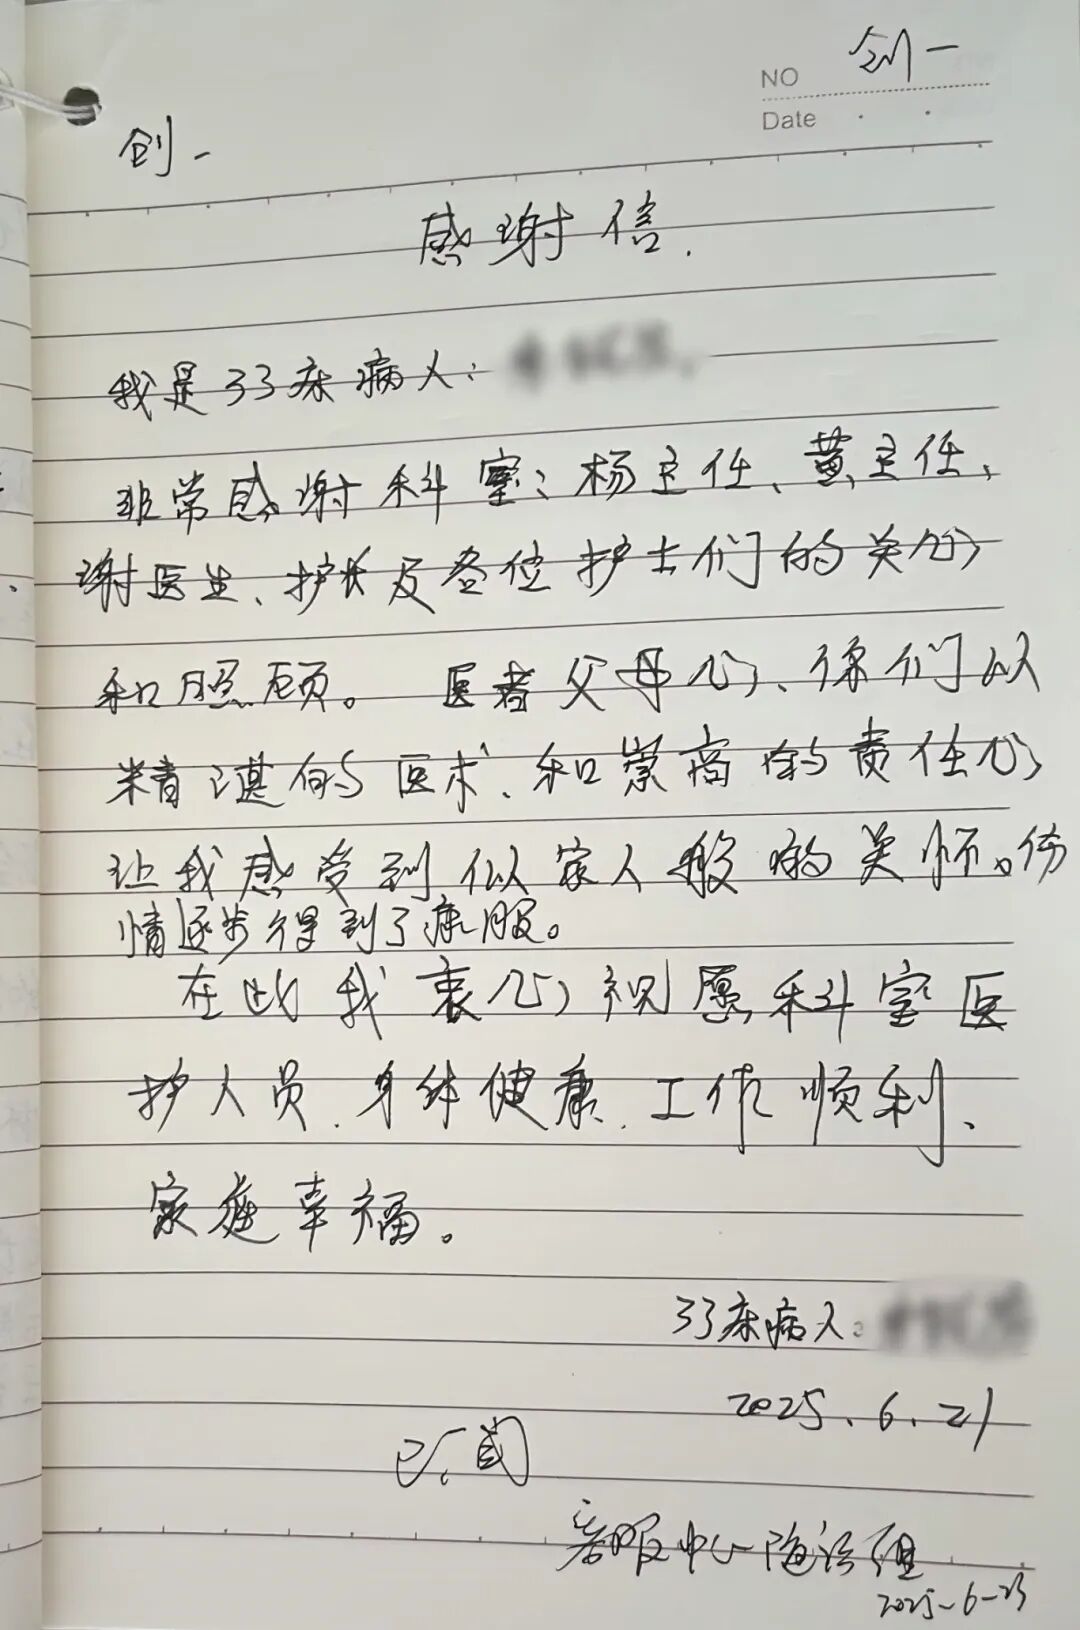 NO 创一
Date
创一
感谢信.
我是33床病人:
非常感谢科室:杨主任、黄主任、
谢医生、护长及各位护士们的关心
和照顾。 医者父母心、你们以
精湛的医术、和崇高的责任心
让我感受到似家人般的关怀。伤
情逐步得到了康服。
在此我衷心祝愿科室医
护人员.身体健康.工作顺利、
家庭幸福。
33床病人:
2025.6.21
已阅
客服中心随访组
2025-6-23